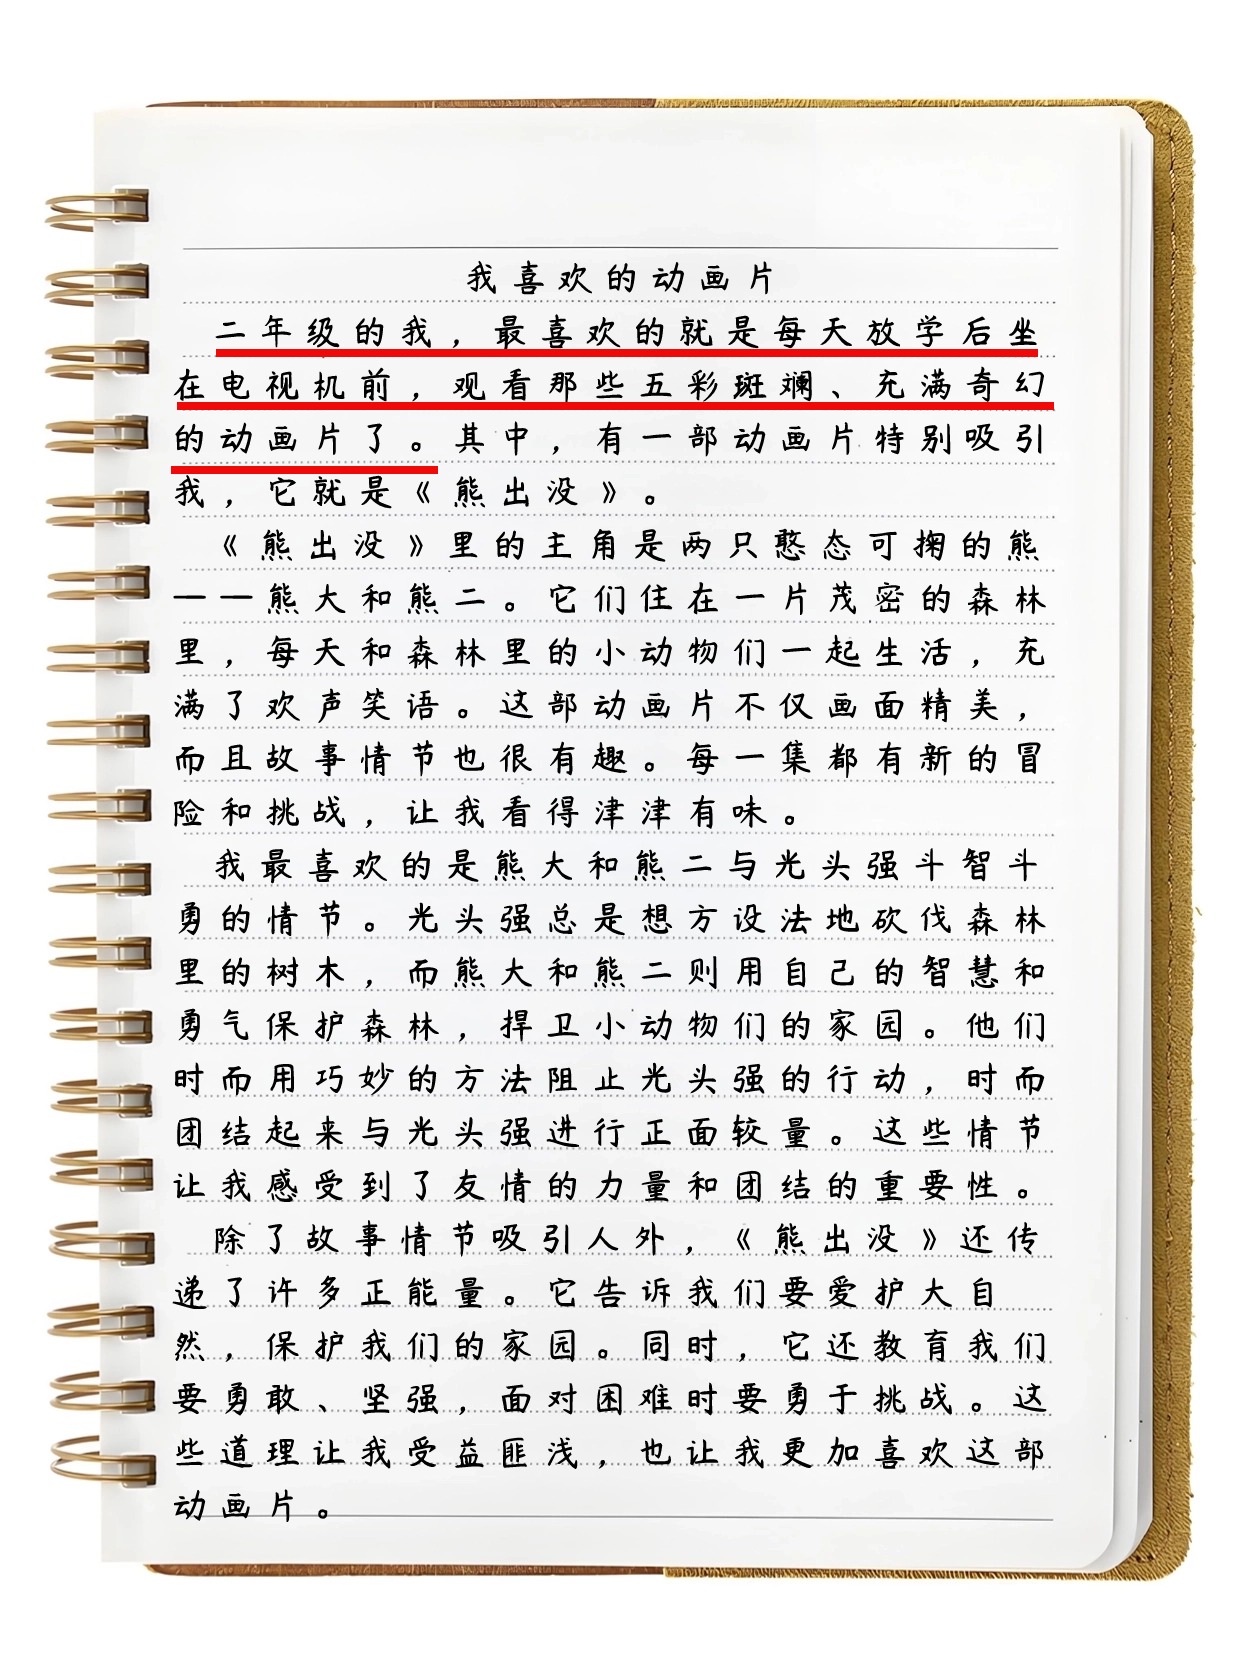 我喜欢的动画片
二年级的我，最喜欢的就是每天放学后坐
在电视机前，观看那些五彩斑斓、充满奇幻
的动画片了。其中，有一部动画片特别吸引
我，它就是《熊出没》。
《熊出没》里的主角是两只憨态可掬的熊
——熊大和熊二。它们住在一片茂密的森林
里，每天和森林里的小动物们一起生活，充
满了欢声笑语。这部动画片不仅画面精美，
而且故事情节也很有趣。每一集都有新的冒
险和挑战，让我看得津津有味。
我最喜欢的是熊大和熊二与光头强斗智斗
勇的情节。光头强总是想方设法地砍伐森林
里的树木，而熊大和熊二则用自己的智慧和
勇气保护森林，捍卫小动物们的家园。他们
时而用巧妙的方法阻止光头强的行动，时而
团结起来与光头强进行正面较量。这些情节
让我感受到了友情的力量和团结的重要性。
除了故事情节吸引人外，《熊出没》还传
递了许多正能量。它告诉我们要爱护大自
然，保护我们的家园。同时，它还教育我们
要勇敢、坚强，面对困难时要勇于挑战。这
些道理让我受益匪浅，也让我更加喜欢这部
动画片。